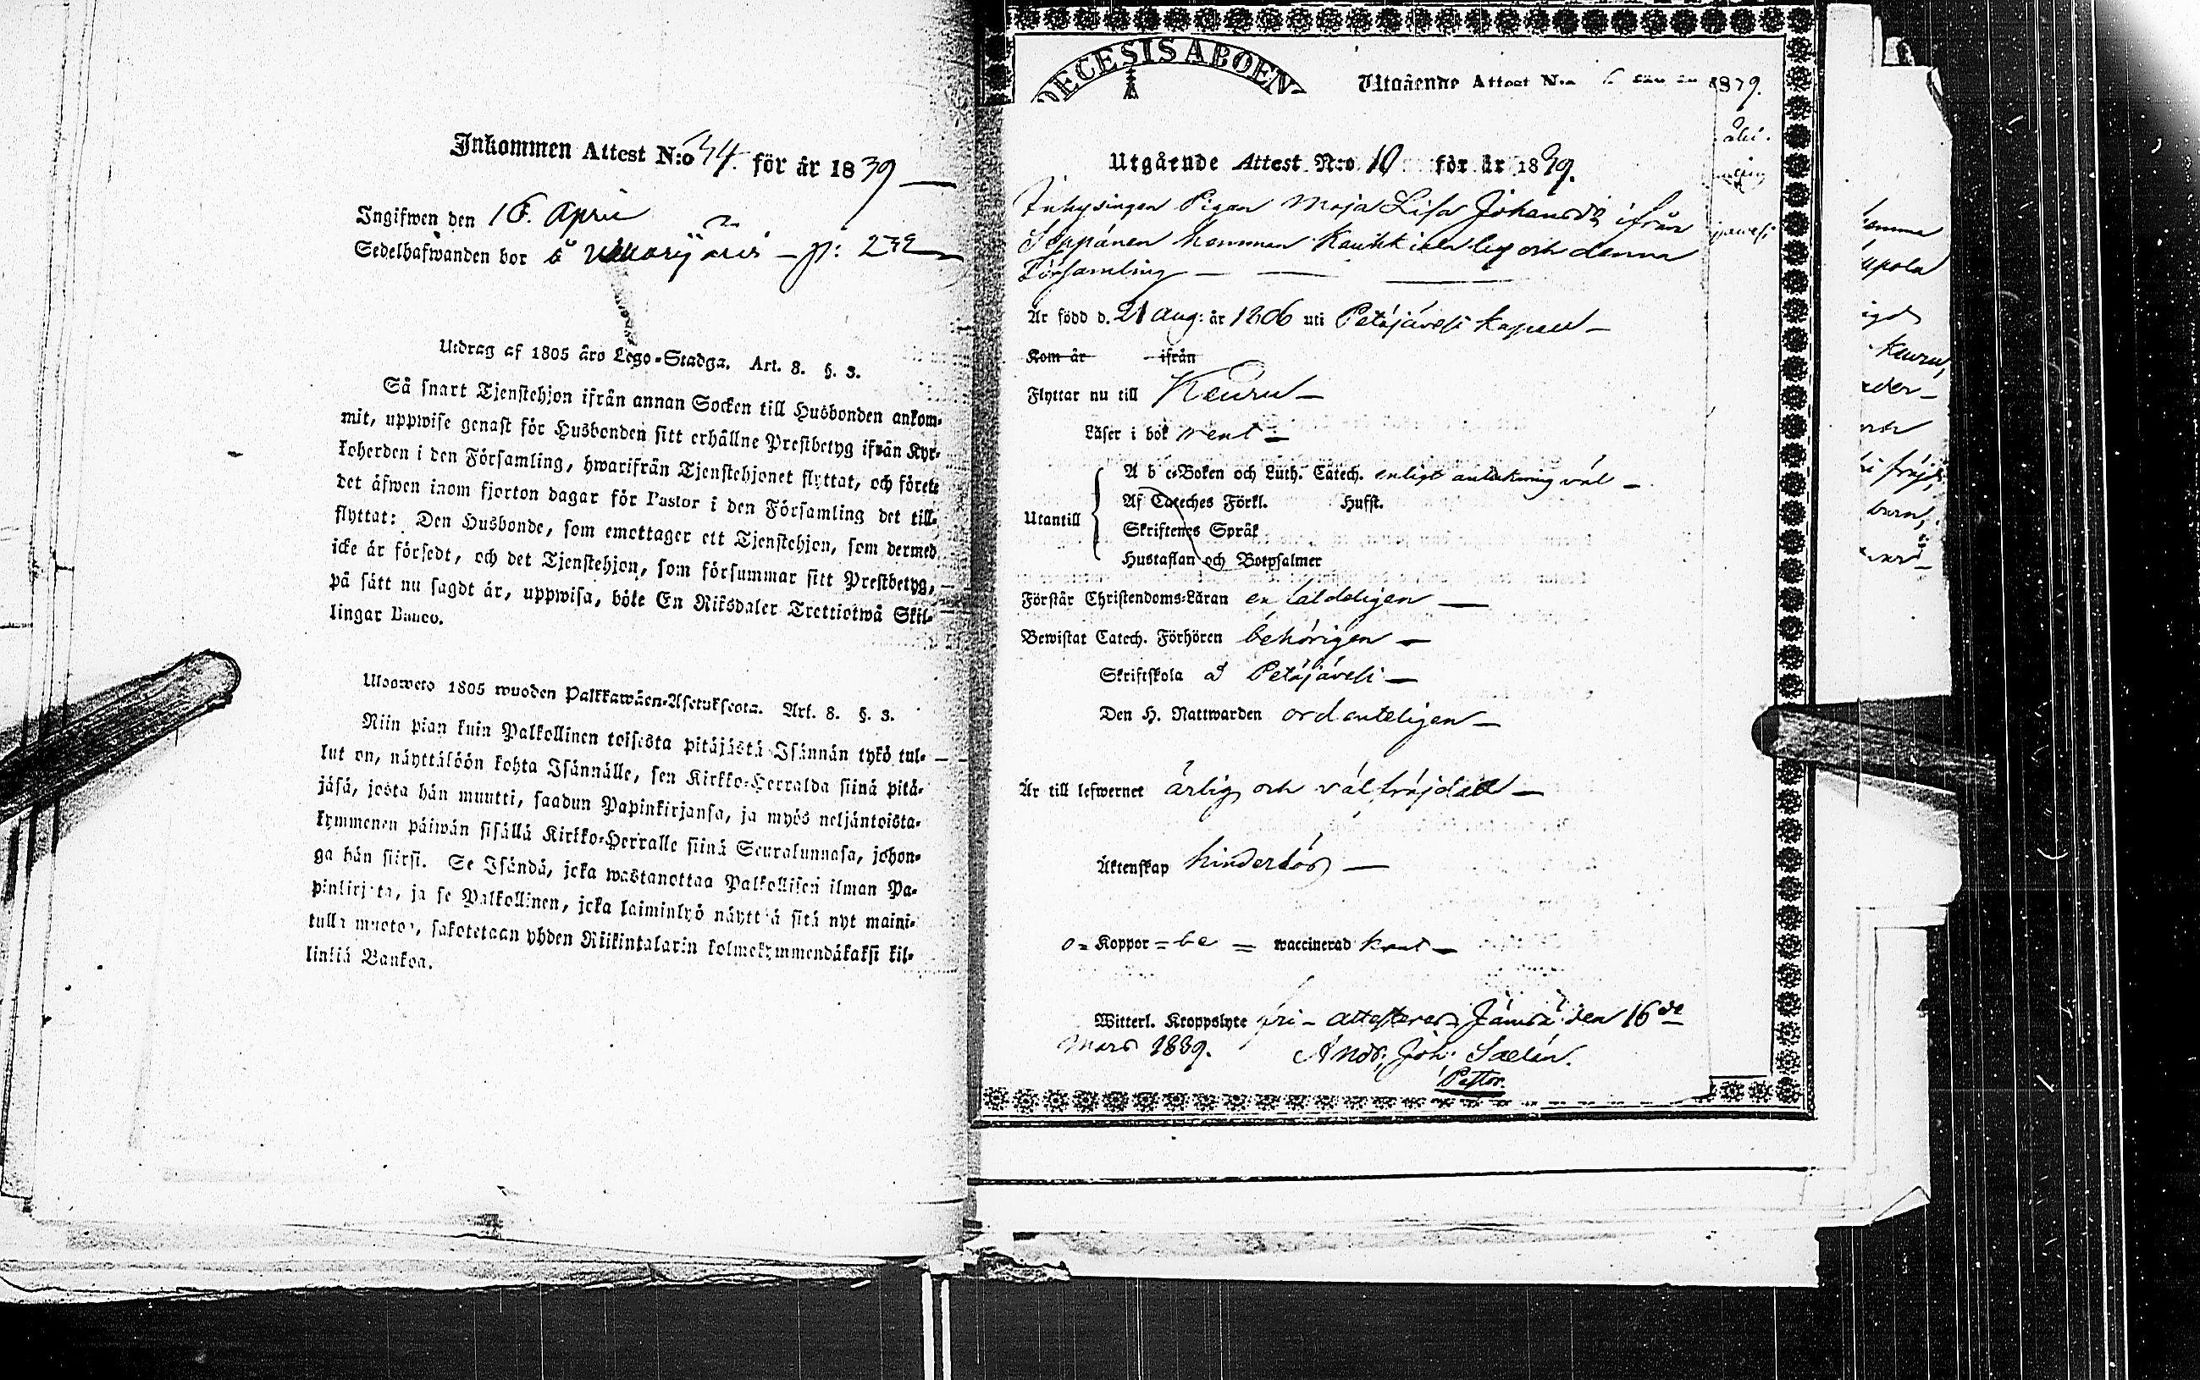 Inkommen Attest N:o 34. för år 1839
Ingifwen den 16. April
Sedelhafwanden bor å
Utdrag af 1805 åro Lego-Stadga. Art. 8. §. 3.
Så snart Tjenstehjon ifrån annan Socken till Husbonden ankom-
mit, uppwise genast för Husbonden sitt erhållne Prestbetyg ifrån Kyr-
koherden i den Församling, hwarifrån Tjenstehjonet flyttat, och förete
det äfwen inom fjorton dagar för Pastor i den Församling det till-
flyttat: Den Husbonde, som emottager ett Tjenstehjon, som dermed
icke är försedt, och det Tjenstehjon, som försummar sitt Prestbetyg,
på sätt nu sagdt är, uppwisa, böte En Riksdaler Trettiotwå Skil-
lingar Banco.
Ulosweto 1805 wuoden Palkkawäen-Asetuksesta. Art. 8. §. 3.
Niin pian kuin Palkollinen toisesta pitäjästä Isännän tykö tul-
lut on, näyttäköön kohta Isännälle, sen Kirkko-Herralda siinä pitä-
jäsä, josta hän muutti, saadun Papinkirjansa, ja myös neljäntoista-
kymmenen päiwän sisällä Kirkko-Herralle siinä Seurakunnasa, johon-
ga hän siirsi. Se Isändä, joka wastanottaa Palkollisen ilman Pa-
pinkirjata, ja se Palkollinen, joka laiminlyö näyttää sitä nyt maini-
tulla muotoa, sakotetaan yhden Riikintalarin kolmekymmendäkaksi kil-
linkiä Bankoa.
DECESIS ABOEN
Utgående Attest N:o 1879.
Utgående Attest N:o 10 för år 1839.
Inhysingen Pigan Maja Lisa Johansdr ifrån
Seppänen hemman by och denna
Församling
Är född d. 21 Aug: år 1806 uti Petäjävesi kapell
Kom år ifrån
Flyttar nu till Keuru
Läser i bok rent
Utantill
A b c-Boken och Luth. Catech. enligt anteckning väl
Af Cateches Förkl. Husst.
Skriftenes Språk
Hustaflan och Botpsalmer
Förstår Christendoms-Läran enfaldeligen
Bewistat Catech. Förhören behörigen
Skriftskola å Petäjävesi
Den H. Nattwarden ordenteligen
Är till lefwernet ärlig och välfräjdad
Äktenskap hinderlös
o = Koppor = be = waccinerad
Witterl. Kroppslyte fri - attesterar Jämsä den 16de
Mars 1839. And: Joh: Saelin.
Pastor.